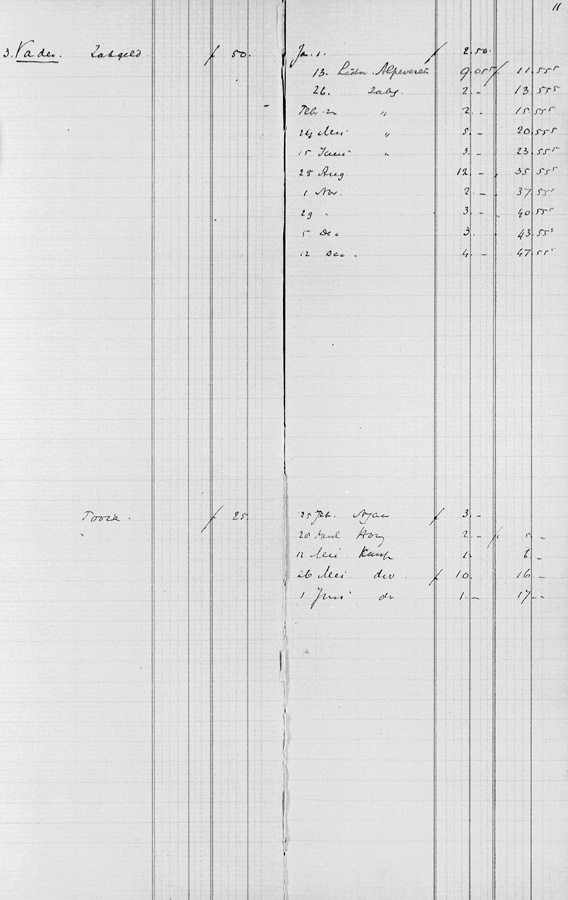 11
3. Vader. Zakgeld ƒ 50. Jan. 1. ƒ 2.50.
13. Lidm. Alpenver. 9.055 ƒ 11.555
26. Zakg. 2.- 13.555
Feb. 2 " 2. 15.555
24 Mei " 5.- 20.555
15 Juni " 3.- 23.555
25 Aug. 12.- 35.555
1 Nov. 2.- 37.555
29 " 3.- 40.555
5 Dec 3. 43.555
12 Dec. 4.- 47.555
ƒ 25. 25 Feb. ƒ 3.-
20 2.- ƒ 5.-
12 Mei 1. 6.-
26 Mei do ƒ 10. 16.-
1 Juni do 1.- 17.-